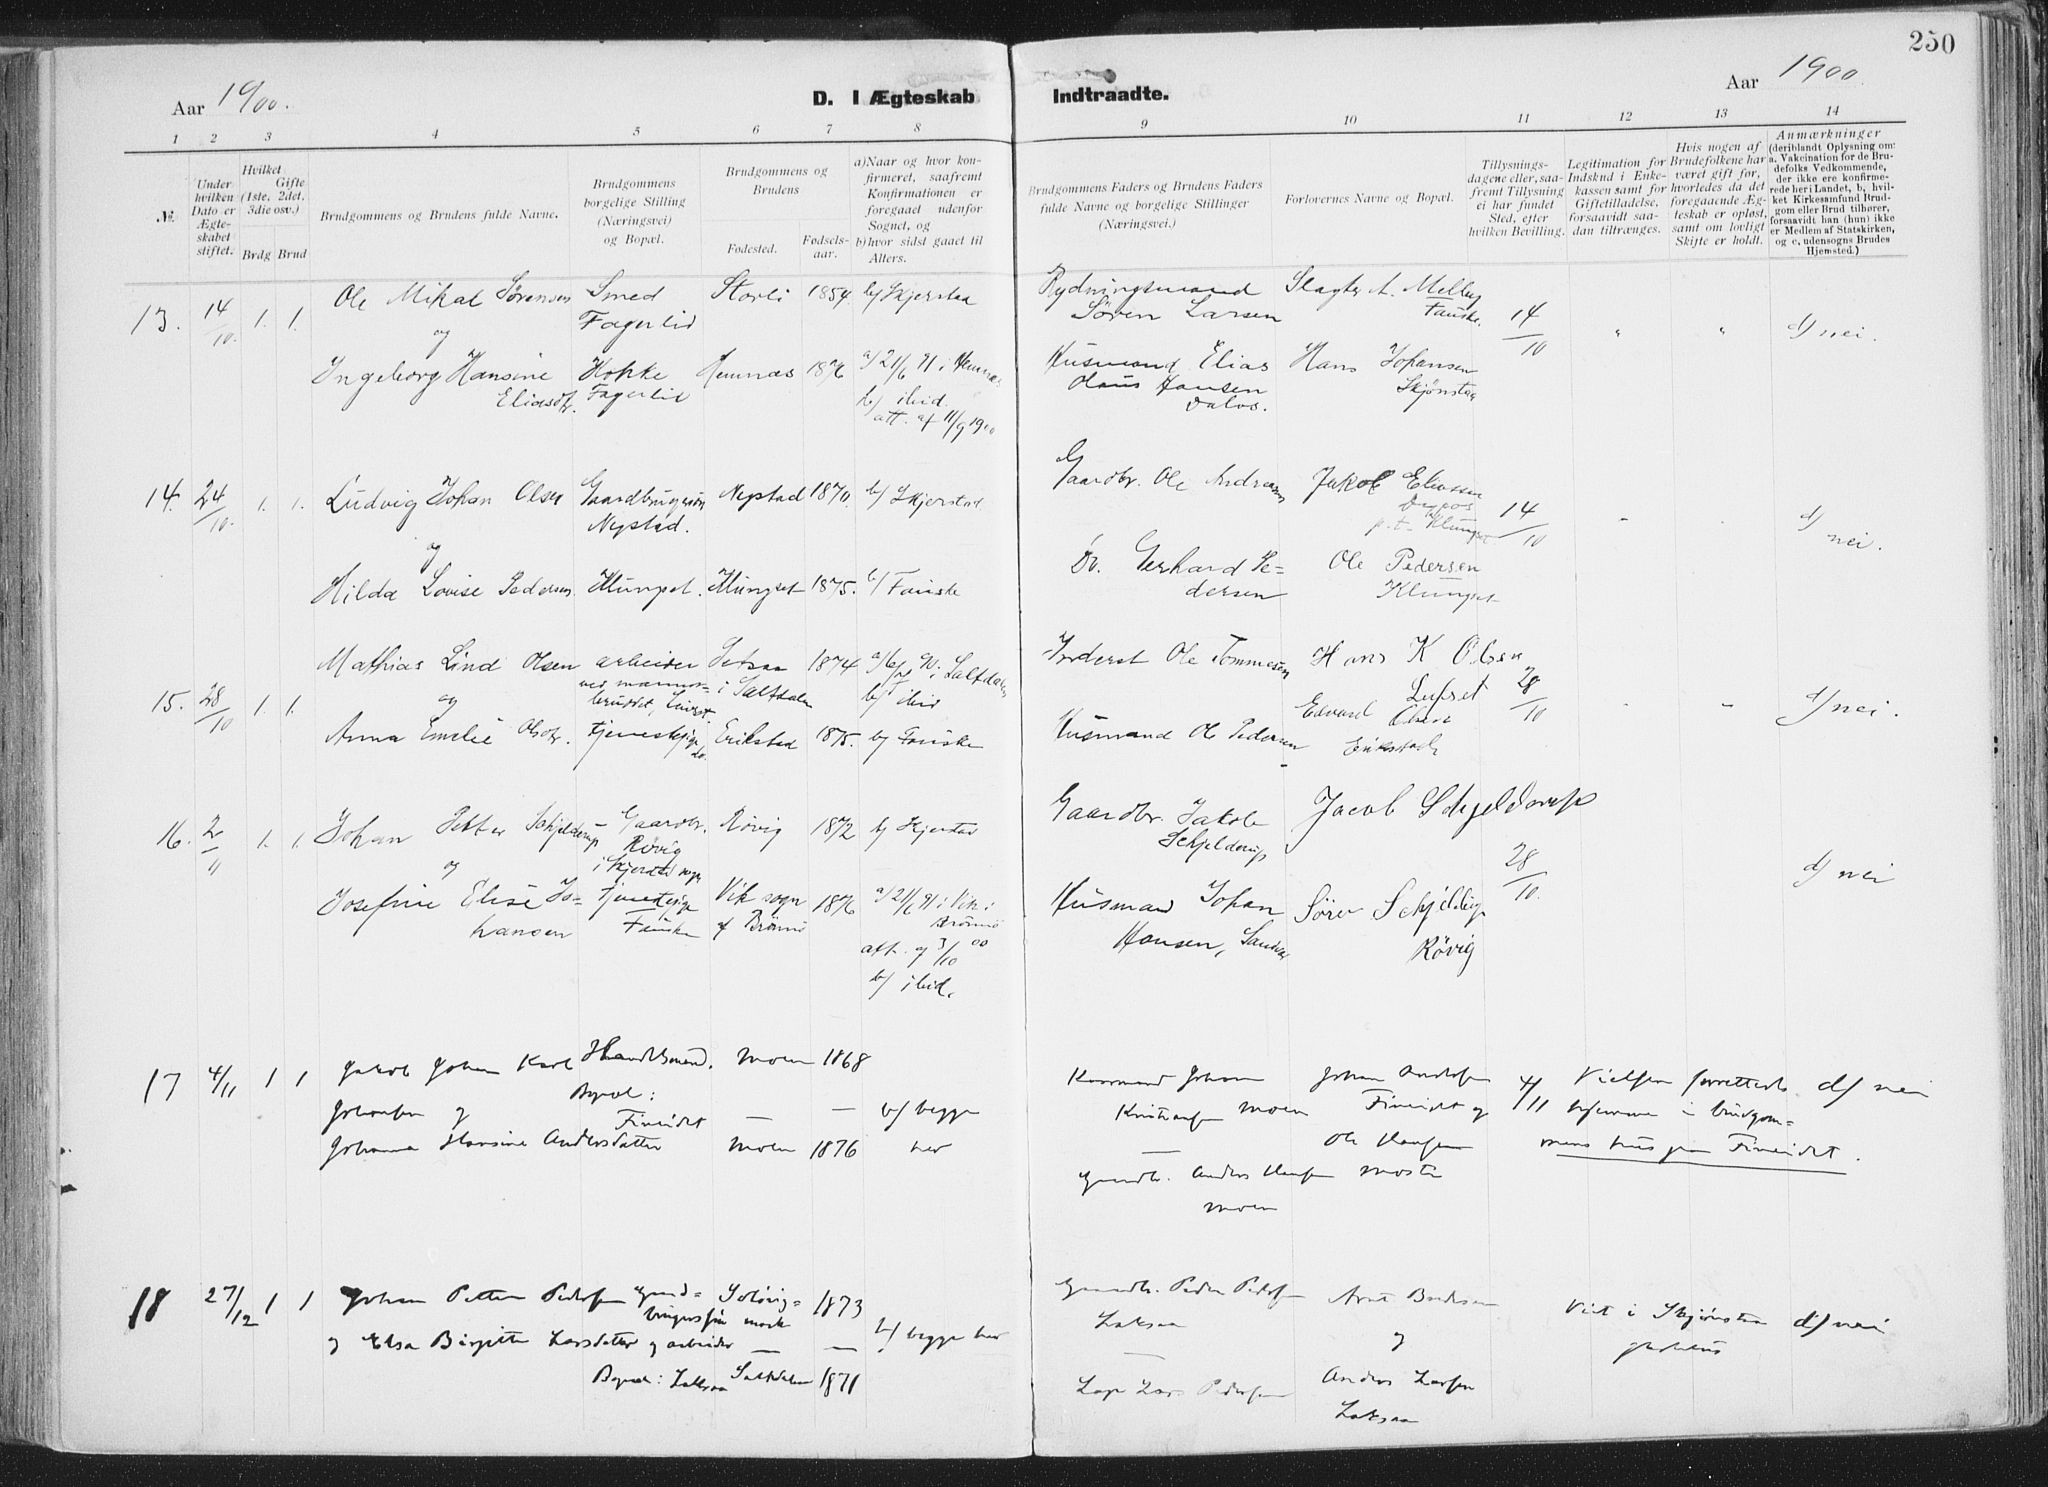 250
Aar 1900.
D. I Ægteskab Indtraadte.
Aar 1900
1 2 3 4 5 6 7 8 9 10 11 12 13 14
№.
Under hvilken Dato er Ægteskabet stiftet.
Hvilket Gifte (1ste, 2det, 3die osv.)
Brdg Brud
Brudgommens og Brudens fulde Navne.
Brudgommens borgelige Stilling (Næringsvei) og Bopæl.
Brudgommens og Brudens
Fødested.
Fødselsaar.
a) Naar og hvor konfirmeret, saafremt Konfirmationen er foregaaet udenfor Sognet, og
b) hvor sidst gaaet til Alters.
Brudgommens Faders og Brudens Faders fulde Navne og borgelige Stillinger (Næringsvei.)
Forlovernes Navne og Bopæl.
Tillysningsdagene eller, saafremt Tillysning ei har fundet Sted, efter hvilken Bevilling.
Legitimation for Indskud i Enkekassen samt for Giftetilladelse, forsaavidt saadan tiltrænges.
Hvis nogen af Brudefolkene har været gift før, hvorledes da det foregaaende Ægteskab er opløst, samt om lovligt Skifte er holdt.
Anmærkninger (deriblandt Oplysning om: a. Vakcination for de Brudefolks Vedkommende, der ikke ere konfirmerede her i Landet, b. hvilket Kirkesamfund Brudgom eller Brud tilhører, forsaavidt han (hun) ikke er Medlem af Statskirken, og c. udensogns Brudes Hjemsted.)
13. 14/10. 1. 1. Ole Mikal Sørensen Smed Fagerlid Storli 1854. b/ Skjerstad Rydningsmand Sören Larsen Slagter A. Melby Fauske. 14/10 " " d/ nei.
og
Ingeborg Hansine Eliasdtr. Kokke Fagerlid Hemnæs 1876 a/ 21/6 91 i Hemnæs b/ ibid. att. af 11/9 1900 Husmand Elias Olaus Hansen Dalos. Hans Johansen Skjönstaa
14. 24/10. 1. 1. Ludvig Johan Olsen Gaardbrugersøn Nystad. Nystad 1870. b/ Skjerstad. Gaardbr. Ole Andreassen Jakob Eliassen p.t. Klungset 14/10 d/ nei.
og
Hilda Lovise Pedersen Klungset. Klungset 1875. b/ Fauske Do. Gerhard Pedersen Ole Pedersen Klungset
15. 28/10 1. 1. Mathias Lind Olsen arbeider ved marmorbruddet, Setsaa i Saltdalen 1874 i Saltdalen b/ ibid Inderst Ole Tommesen Hans K Olsen 28/10 d/ nei.
og
Anna Emelie Olsdtr. tjenestepige do. Erikstad 1875. b/ Fauske Husmand Ole Pedersen Edvard Olsen Erikstad
16. 2/11 1. 1. Johan Petter Schjelderup Gaardbr. Rövig i Skjerstad sogn Rövig 1872 b/ Skjerstad Gaardbr. Jakob Schjelderup Jacob Schjelderup 28/10. d/ nei
og
Josefine Elise Johansen tjenestepige Fauske Vik sogn af Brønnö 1876 a/ 21/6 91 i Vik i Brönnö att. af 3/10 00 b/ ibid. Husmand Johan Hansen, Sören Schjelderup Rövig
17 4/11 1 1 Jakob Johan Karl Johansen og Handelsmand. Bopæl: Fineidet Moen 1868 b/ begge her Johan Kristiansen Moen Johan Andersen Fineidet og Ole Hansen 4/11 Vielsen forrettedes hjemme i brudgommens hus paa Fineidet. d/ nei
Johanna Hansine Andersdatter Moen 1876 Gaardbr. Anders Hansen Moen
18 27/12 1 1 Johan Petter Pedersen 1873 b/ begge her Gaardbr. Peder Pedersen Laksaa og Viet i Skjönstaa d/ nei
og Elsa Birgitte Larsdatter og arbeider
Bopæl: Laksaa Saltdalen 1871 Lars Pedersen Anders Larsen Laksaa